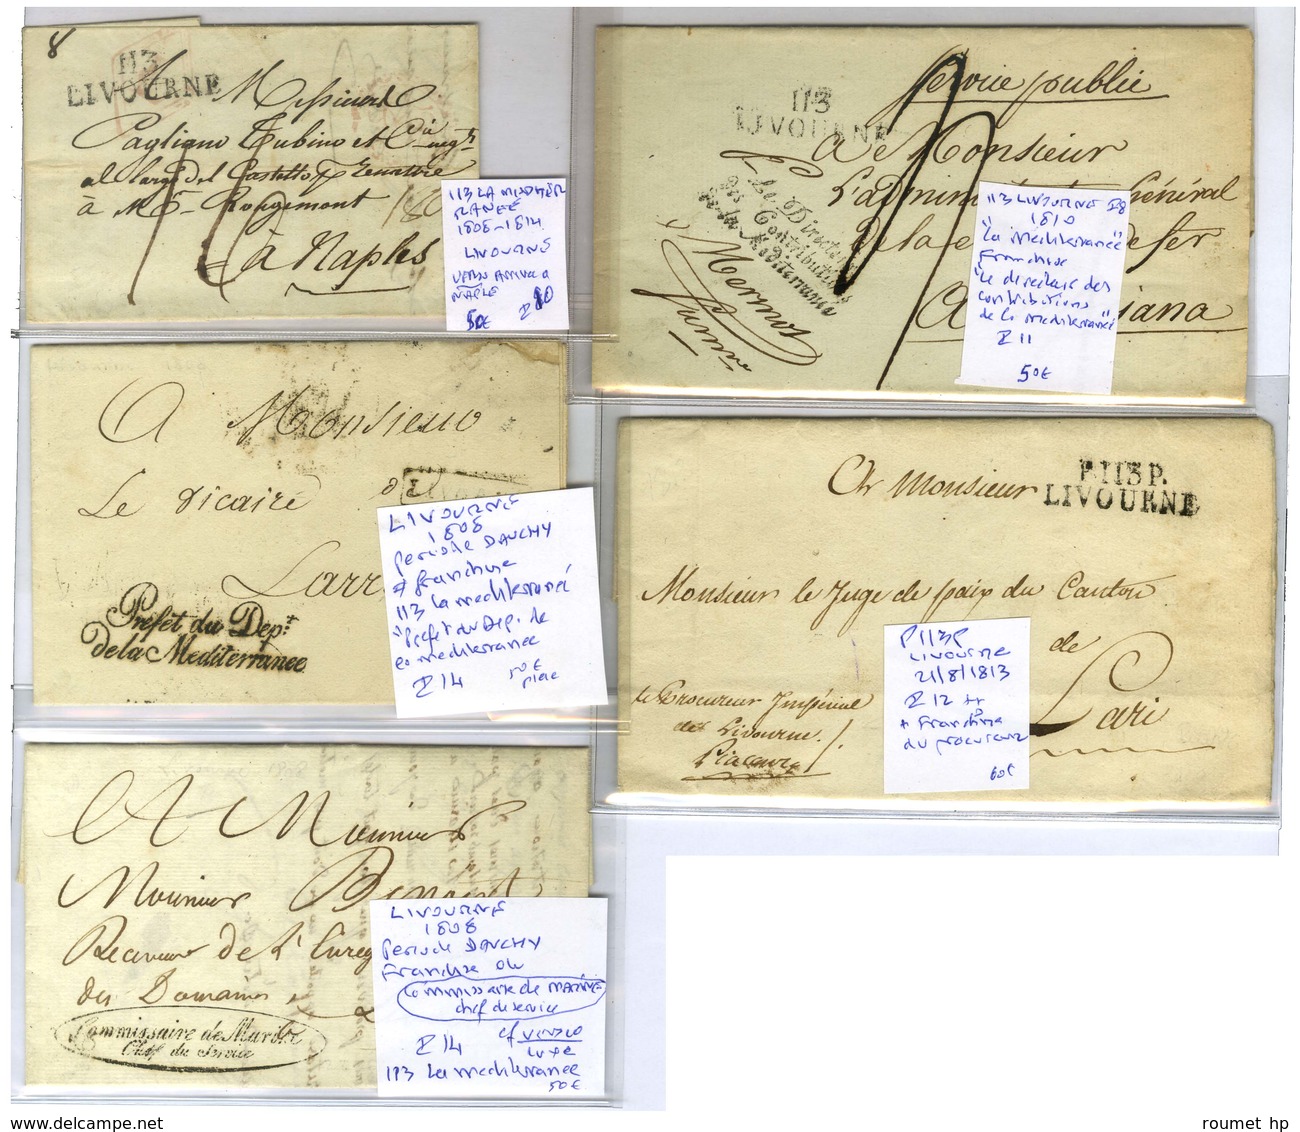 8
113
LIVOURNE
Messieurs
Pagliano Rubino et
al largo del Castello
à Mr. Rougemont
à Naples
113 LA MEDITER
RANEE
1808-1814
LIVOURNE
VERSO ARRIVEE A
NAPLE
50€
I 10
Service public
113
LIVOURNE
A Monsieur
L'administrateur Général
de la
Le Directeur
des Contributions
de la Mediterranée
113 LIVOURNE 28
1810
"La mediterranée"
Franchise
"Le directeur des
contributions
de la mediterranée"
I 11
50€
A Monsieur
Le vicaire
Prefet du Dept.
de la Mediterranee
LIVOURNE
1808
Periode DAUCHY
+ franchise
113 la mediterranée
"Prefet du Dep. de
la mediterranée
I 14
50€
pièce
P.113P.
LIVOURNE
A Monsieur
Monsieur le Juge de paix du Canton
de
Lari
Le Procureur Impérial
de Livourne
P113P
LIVOURNE
21/8/1813
I 12 ++
+ Franchise
du procureur
60€
A Monsieur
Monsieur Benoist
Receveur de l'Enreg
des Domaines
Commissaire de Marine
Chef du Service
LIVOURNE
1808
Periode DAUCHY
Franchise du
Commissaire de MARINE
chef de service
I 14
cf VERSO
LUXE
113 La mediterranee
50€
www.delcampe.net
roumet hp